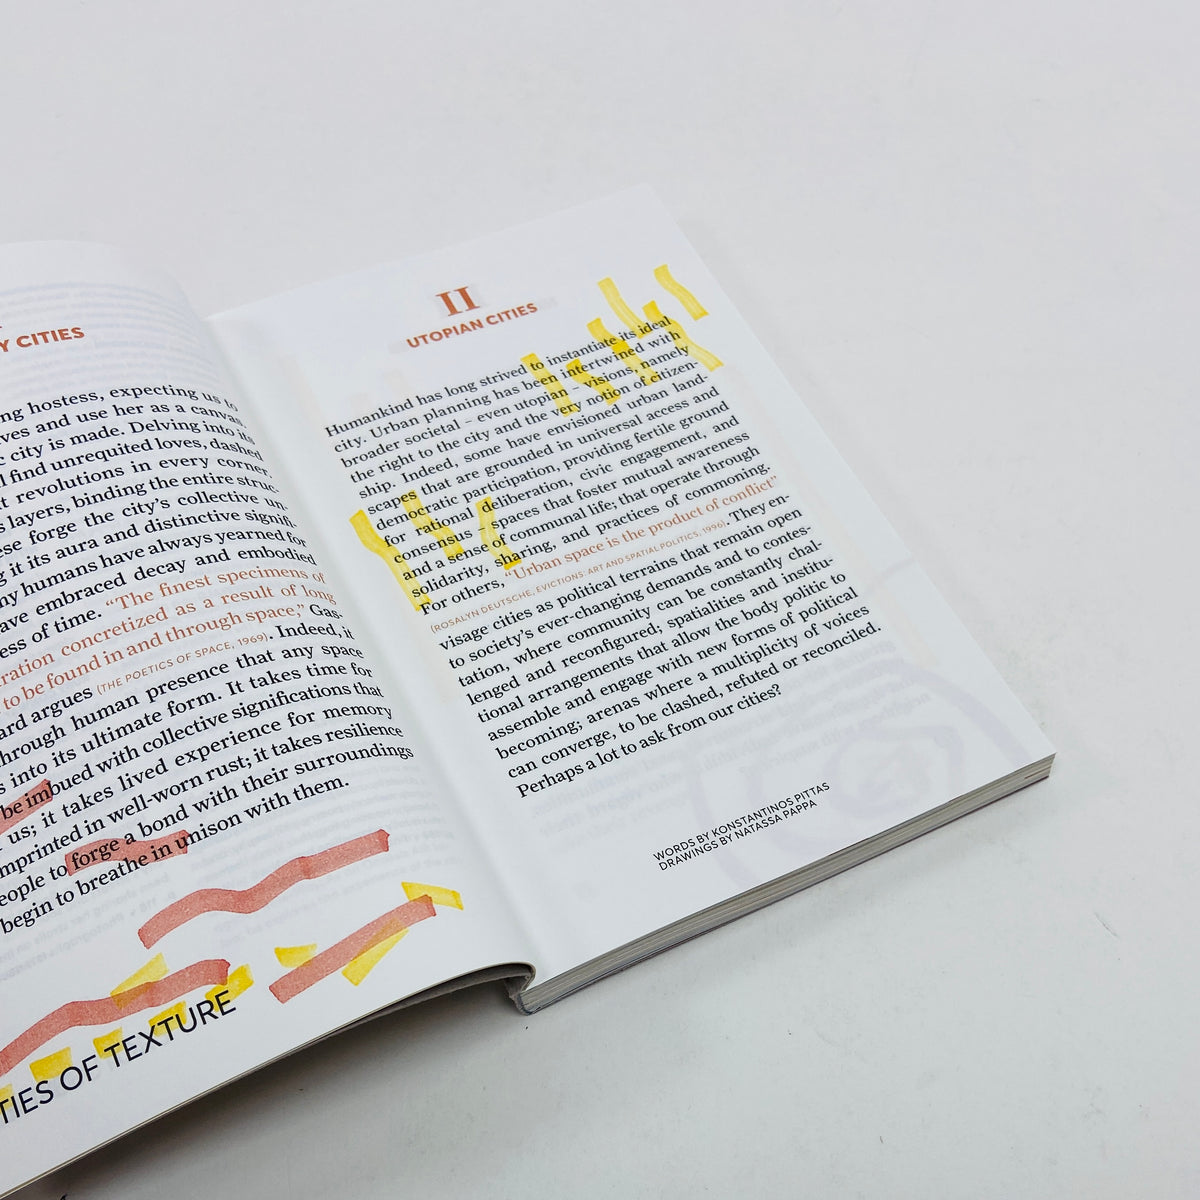 Y CITIES
ng hostess, expecting us to
ves and use her as a canvas.
c city is made. Delving into its
l find unrequited loves, dashed
t revolutions in every corner
s layers, binding the entire struc-
ese forge the city's collective un
g it its aura and distinctive signifi
ny humans have always yearned for
ave embraced decay and embodied
ess of time. “The finest specimens of
ration concretized as a result of long
to be found in and through space,” Gas-
ard argues (THE POETICS OF SPACE, 1969). Indeed, it
hrough human presence that any space
s into its ultimate form. It takes time for
be imbued with collective significations that
us; it takes lived experience for memory
mprinted in well-worn rust; it takes resilience
eople to forge a bond with their surroundings
begin to breathe in unison with them.
TIES OF TEXTURE
II
UTOPIAN CITIES
Humankind has long strived to instantiate its ideal
city. Urban planning has been intertwined with
broader societal – even utopian – visions, namely
the right to the city and the very notion of citizen-
ship. Indeed, some have envisioned urban land-
scapes that are grounded in universal access and
democratic participation, providing fertile ground
for rational deliberation, civic engagement, and
consensus – spaces that foster mutual awareness
and a sense of communal life; that operate through
solidarity, sharing, and practices of commoning.
For others, “Urban space is the product of conflict”
(ROSALYN DEUTSCHE, EVICTIONS: ART AND SPATIAL POLITICS, 1996). They en-
visage cities as political terrains that remain open
to society's ever-changing demands and to contes-
tation, where community can be constantly chal-
lenged and reconfigured; spatialities and institu-
tional arrangements that allow the body politic to
assemble and engage with new forms of political
becoming; arenas where a multiplicity of voices
can converge, to be clashed, refuted or reconciled.
Perhaps a lot to ask from our cities?
WORDS BY KONSTANTINOS PITTAS
DRAWINGS BY NATASSA PAPPA